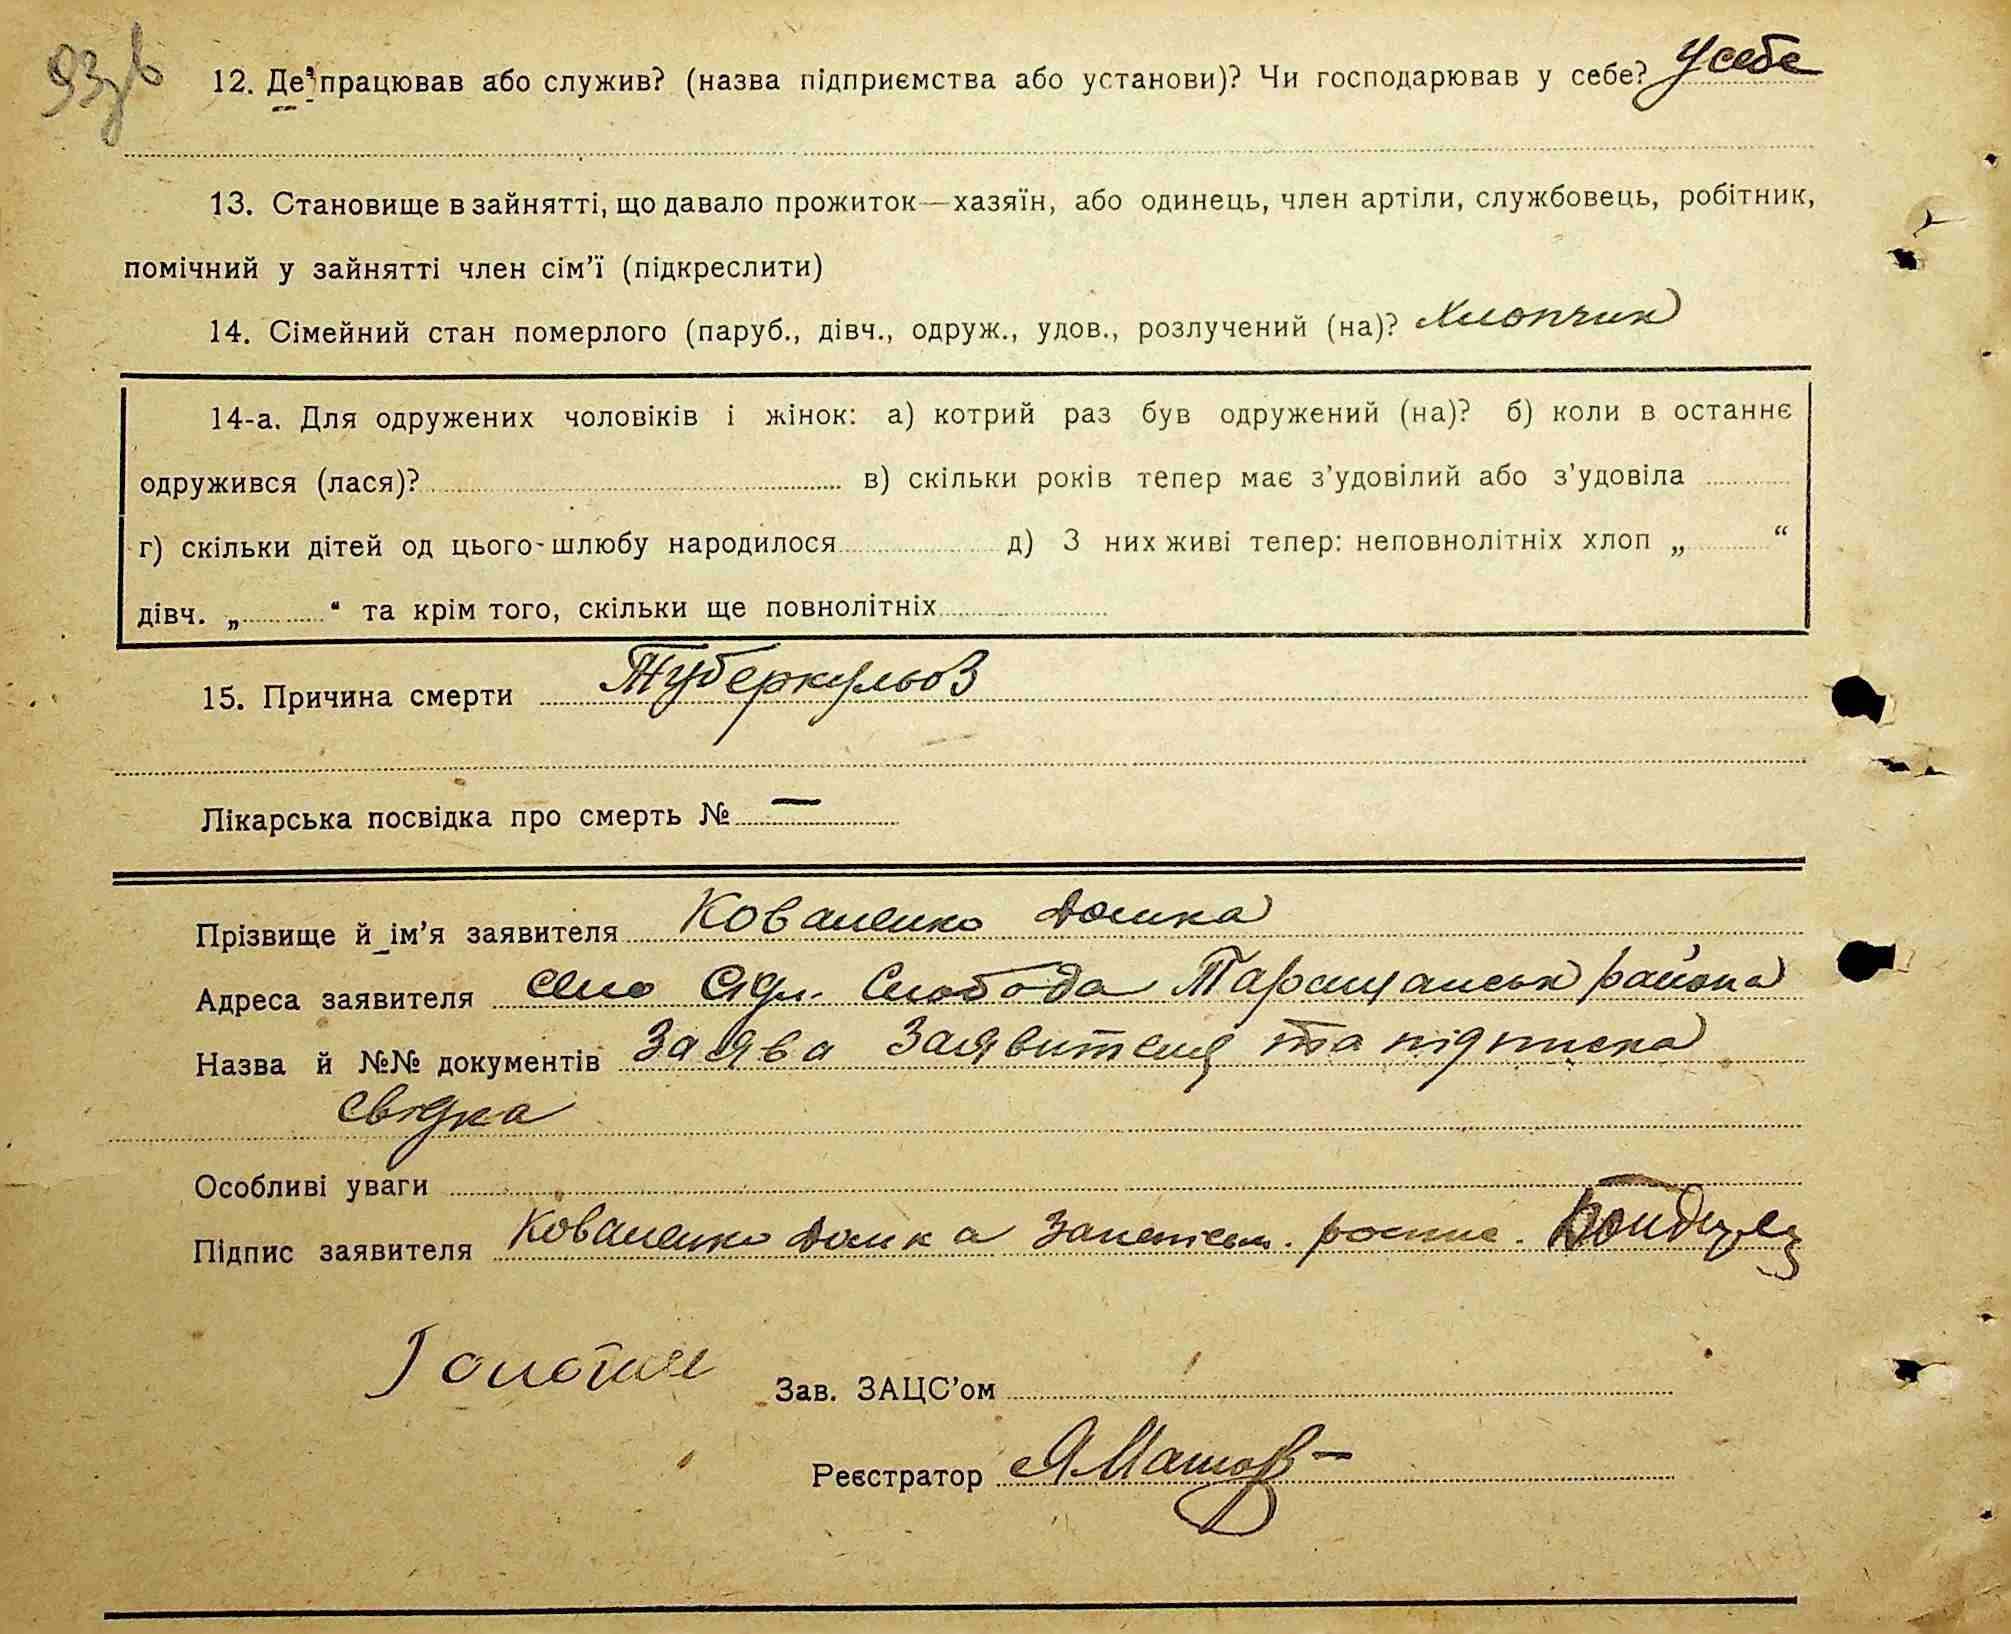 93зв
12. Де працював або служив? (назва підприємства або установи)? Чи господарював у себе? У себе
13. Становище в зайнятті, що давало прожиток—хазяїн, або одинець, член артіли, службовець, робітник,
помічний у зайнятті член сім’ї (підкреслити)
14. Сімейний стан померлого (паруб., дівч., одруж., удов., розлучений (на)? Хлопчик
14-а. Для одружених чоловіків і жінок: а) котрий раз був одружений (на)? б) коли в останнє
одружився (лася)? в) скільки років тепер має з’удовілий або з’удовіла
г) скільки дітей од цього шлюбу народилося д) З них живі тепер: неповнолітніх хлоп „ “
дівч. „ “ та крім того, скільки ще повнолітніх
15. Причина смерти Туберкульоз
Лікарська посвідка про смерть № —
Прізвище й ім’я заявителя Коваленко Домка
Адреса заявителя село Слобода Таращанськ района
Назва й №№ документів Заява Заявителя та підписка
свідка
Особливі уваги
Підпис заявителя Коваленко Домка
Зав. ЗАЦС’ом
Реєстратор